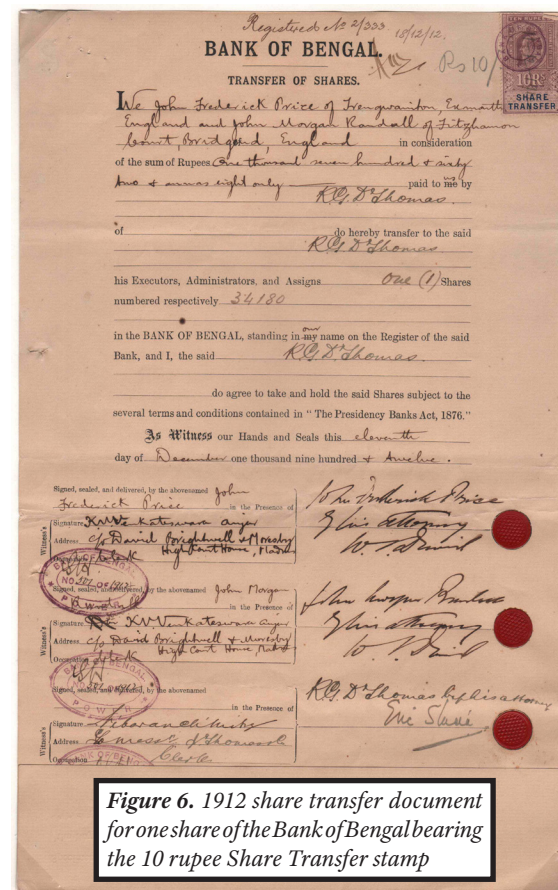 Registered No 2/333 18/12/12.
BANK OF BENGAL.
Rs 10/
TEN RUPEES
10R
SHARE
TRANSFER
TRANSFER OF SHARES.
We John Frederick Price of Trengwainton, Exmouth
England and John Morgan Randall of Fitzhamon
Court, Bridgend, England in consideration
of the sum of Rupees One thousand seven hundred & sixty
two & annas eight only paid to us me by
R.G. D. Thomas.
of do hereby transfer to the said
R.G. D. Thomas
his Executors, Administrators, and Assigns One (1) Shares
numbered respectively 34180
in the BANK OF BENGAL, standing in our my name on the Register of the said
Bank, and I, the said R.G. D. Thomas.
do agree to take and hold the said Shares subject to the
several terms and conditions contained in "The Presidency Banks Act, 1876."
As Witness our Hands and Seals this eleventh
day of December one thousand nine hundred & twelve.
Signed, sealed, and delivered, by the abovenamed John
Frederick Price in the Presence of
John Frederick Price
Witness's
Signature K.V. Venkateswara Aiyer
by his attorney
Address c/o David Brightwell & Moresby
High Court House, Madras
Occupation Clerk
BANK OF BENGAL
POWER
Signed, sealed, and delivered, by the abovenamed John Morgan
Randall in the Presence of
John Morgan Randall
Witness's
Signature K.V. Venkateswara Aiyer
by his attorney
Address c/o David Brightwell & Moresby
High Court House, Madras
Occupation Clerk
BANK OF BENGAL
POWER
Signed, sealed, and delivered, by the abovenamed
in the Presence of
R.G. D. Thomas by his attorney
Witness's
Signature
Address
Occupation Clerk
BANK OF BENGAL
Figure 6. 1912 share transfer document
for one share of the Bank of Bengal bearing
the 10 rupee Share Transfer stamp